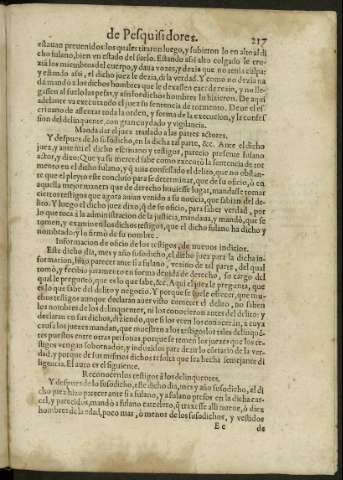 de Pesquisidores. 217
estauan preuenidos los quales tiraron luego, y subieron lo en alto al di
cho fulano, bien vn estado del suelo. Estando assi alto colgado le cru-
xiã los miembros del cuerpo, y daua vozes, y dezia que no tenia culpa:
y estando assi, el dicho juez le dezia, diga verdad. Y como no dezia na
da mandò a los dichos hombres que le dexassen caer de rezio, y no lle-
gassen al suelo los pies, y assi los dichos hombres lo hizieron. De aqui
adelante va executando el juez su sentencia de tormento. Deue el es-
criuano de assentar toda la orden, y forma de la execucion, y la confes
sion del delinquente, con gran cuydado y vigilancia.
Manda dar el juez traslado a las partes actores.
Y despues de lo susodicho, en la dicha tal parte, &c. Ante el dicho
juez, y ante mi el dicho escriuano y testigos, parecio presente fulano
actor, y dixo: Que ya su merced sabe como executò la sentencia de tor
mento en el dicho fulano, y q̃ auia confessado el delito, que no obstan-
te que el pleyto este concluso para se determinar, que de su oficio, ò en
aquella mejor manera que de derecho huuiesse lugar, mandasse tomar
ciertos testigos que agora auian venido a su noticia, que sabian del de-
lito. Y luego el dicho juez dixo, q̃ de su oficio, para saber verdad, por
lo que toca à la administracion de la justicia, mandaua, y mandò, que se
tomen, y examinen los dichos testigos, que el dicho fulano ha dicho y
nombrado: y lo firmò de su nombre.
Informacion de oficio de los testigos, de nueuos indicios.
Este dicho dia, mes y año susodicho, el dicho juez para la dicha in-
formacion, hizo parecer ante si a fulano, vezino de tal parte, del qual
tomò, y recibio juramento en forma deuida de derecho, so cargo del
qual le preguntò, que es lo que sabe, &c. Aqui el juez le pregunta, que
es lo que sabe del delito y negocio. Y porque se suele ofrecer, que mu-
chos testigos aunque declaran auer visto cometer el delito, no saben
los nombres de los delinquentes, ni los conocieron antes del delito: y
declaran en sus dichos, diziendo, que si los veen los conoceran, a cuya
causa los juezes mandan, que muestren a los testigos los tales delinquẽ-
tes puestos entre otras personas porque se temen los juezes que los te-
stigos vengan sobornados, y induzidos para dezir lo contrario de la ver-
dad, y porque de sus mesmos dichos resulta que sea hecha semejante di
ligencia. El auto es el siguiente.
Reconocen los testigos à los delinquentes.
Y despues de lo susodicho, este dicho dia, mes y año susodicho, el di
cho juez hizo parecer ante si a fulano, y a fulano presos en la dicha car-
cel, y parecidos, mandò a fulano carcelero, q̃ traxesse alli nueue, ò diez
hombres de la edad, poco mas, ò menos de los susodichos, y vestidos
E e de